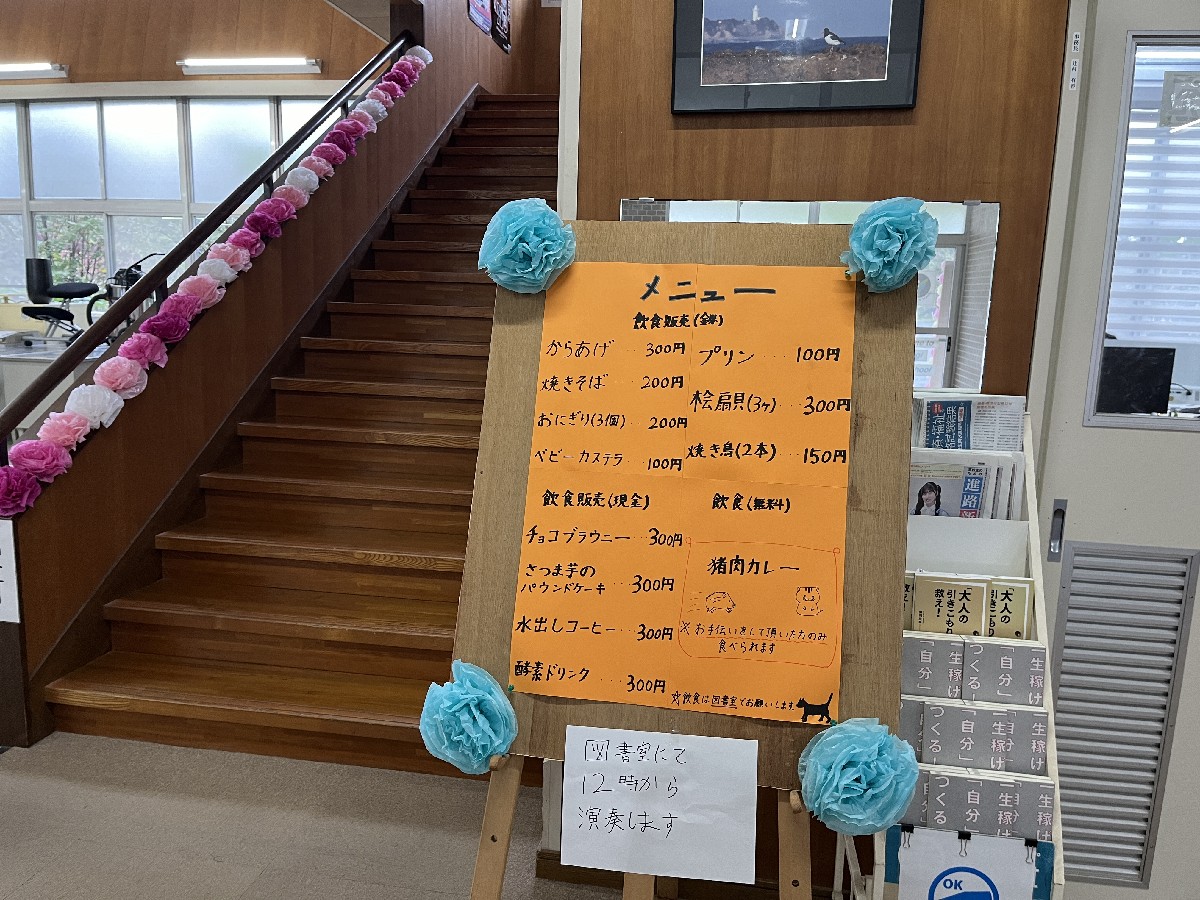 メニュー
飲食販売(金券)
からあげ … 300円
焼きそば … 200円
おにぎり(3個) … 200円
ベビーカステラ … 100円
プリン … 100円
桧扇貝(3ケ) … 300円
焼き鳥(2本) … 150円
飲食販売(現金)
チョコブラウニー … 300円
さつま芋の
パウンドケーキ … 300円
水出しコーヒー … 300円
酵素ドリンク … 300円
飲食(無料)
猪肉カレー
※お手伝いをして頂いた方のみ
食べられます
☆飲食は図書室でお願いします
図書室にて
12時から
演奏します
進路
「大人の
引きこもり
救え!
「大人の
引きこもり
救え!
生稼げ
つくる!
「自分」
生稼げ
つくる!
「自分」
生稼げ
つくる!
「自分」
OK